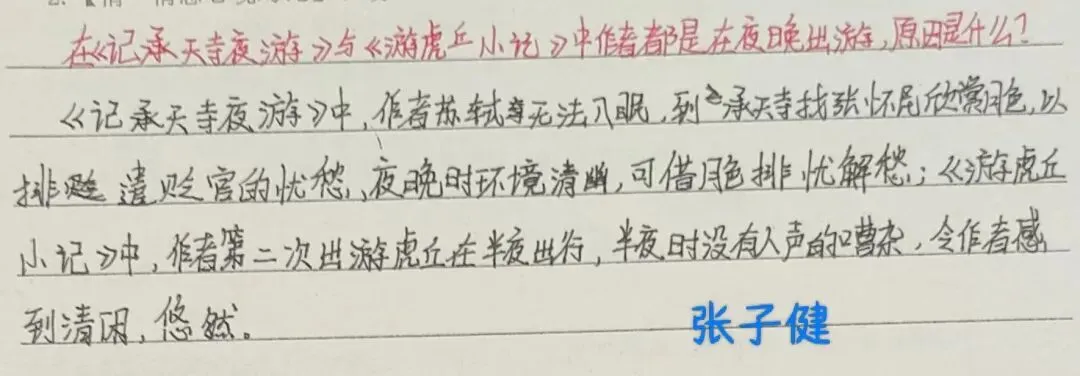 在《记承天寺夜游》与《游虎丘小记》中作者都是在夜晚出游,原因是什么?
《记承天寺夜游》中,作者苏轼无法入眠,到承天寺找张怀民欣赏月色,以
排遣贬官的忧愁、夜晚时环境清幽,可借月色排忧解愁;《游虎丘
小记》中,作者第二次出游虎丘在半夜出行,半夜时没有人声的嘈杂,令作者感
到清闲,悠然。
张子健